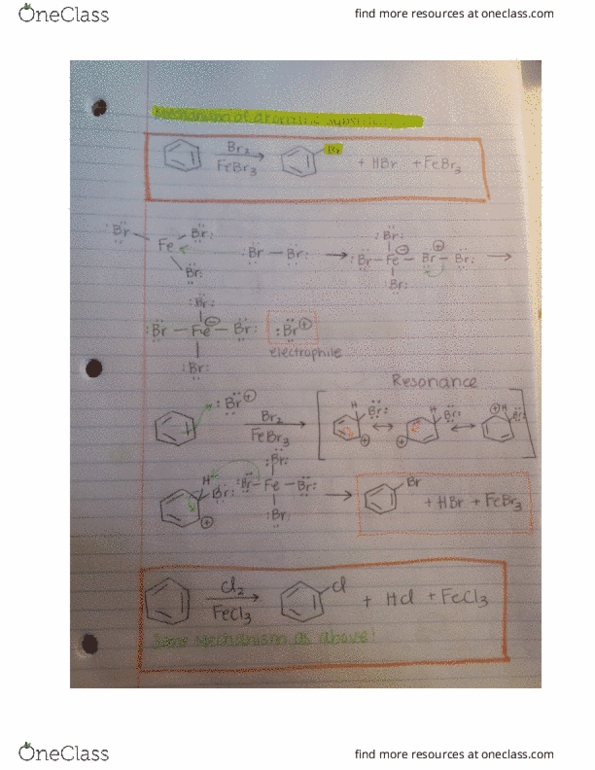 OneClass
find more resources at oneclass.com
Mechanism of aromatic
Br2
FeBr3
Br
+ HBr + FeBr3
:Br — Fe Br: Br: :Br — Br: → :Br — Fe — Br — Br: Br: Br: ⊖ ⊕ →
:Br — Fe — Br: Br: Br: ⊖ :Br ⊕
electrophile
Resonance
:Br ⊕
Br2
FeBr3
H Br: ⊕ ↔ ⊕ H Br: ↔ ⊕ H Br:
H Br: ⊕ :Br — Fe — Br: Br: Br: → Br + HBr + FeBr3
Cl2
FeCl3
Cl
+ HCl + FeCl3
Same mechanism as above!
OneClass
find more resources at oneclass.com